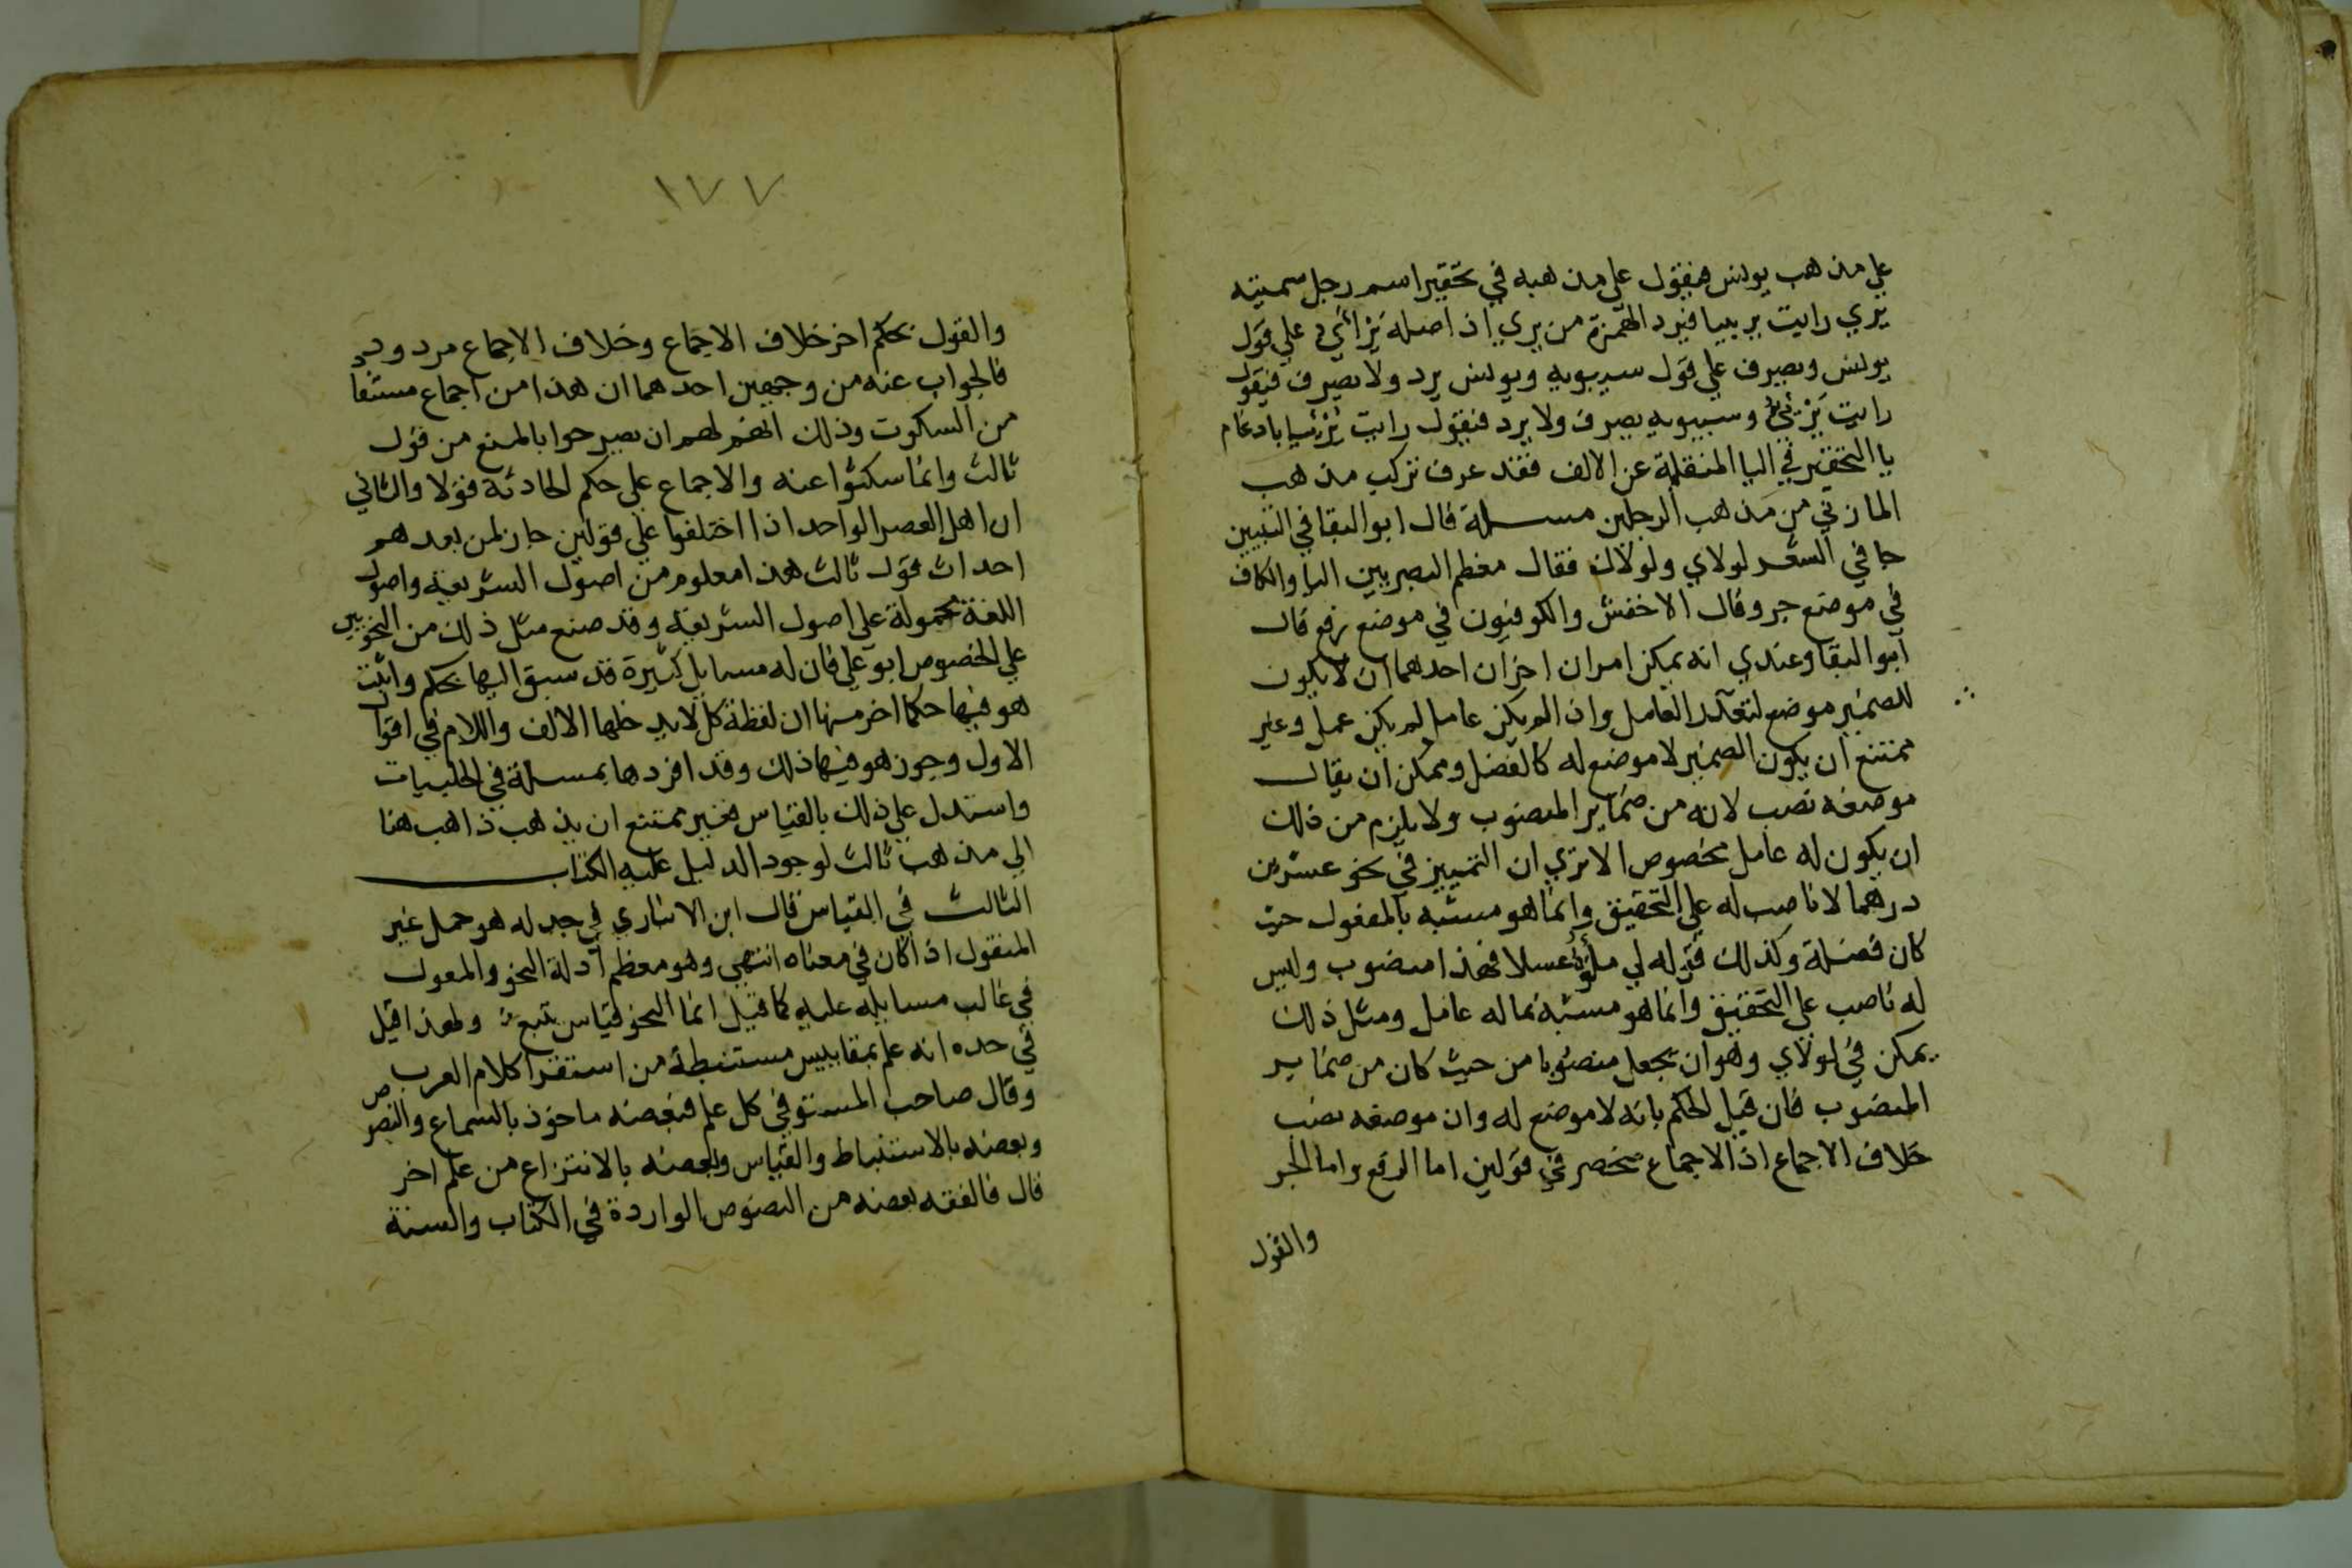 علي مذهب يونس فنقول علي مذهبه في تحقير اسم رجل سميته
يري رايت يرييا فيرد الهمزة من يري اذ اصله يَرْأَيُ علي قول
يونس ويصرف علي قول سيبويه ويونس يرد ولا يصرف فيقول
رايت يُرَيْئِيَ وسيبويه يصرف ولا يرد فنقول رايت يُرَيّيا بادغام
يا التحقير في اليا المنقلبة عن الالف فقد عرف تركب مذهب
المازني من مذهب الرجلين مسـلة قال ابو البقا في التبيين
جا في الشعر لولاي ولولاك فقال معظم البصريين اليا والكاف
في موضع جر وقال الاخفش والكوفيون في موضع رفع قال
ابو البقا وعندي انه يمكن امران اخران احدهما ان لا يكون
للضمير موضع لتعذر العامل واذا لم يكن عامل لم يكن عمل وغير
ممتنع ان يكون الضمير لا موضع له كالفصل وممكن ان يقال
موضعه نصب لانه من ضماير المنصوب ولا يلزم من ذلك
ان يكون له عامل مخصوص الا تري ان التمييز في نحو عشرين
درهما لا ناصب له علي التحقيق وانما هو مشبه بالمفعول حيث
كان فضلة وكذلك قوله لي ملؤه عسلا فهذا منصوب وليس
له ناصب علي التحقيق وانما هو مشبه بما له عامل ومثل ذلك
يمكن في لولاي وهو ان يجعل منصوبا من حيث كان من ضماير
المنصوب فان قيل الحكم بانه لا موضع له وان موضعه نصب
خلاف الاجماع اذ الاجماع منحصر في قولين اما الرفع واما الجر
والقول
١٧٧
والقول بحكم اخر خلاف الاجماع وخلاف الاجماع مردود
فالجواب عنه من وجهين احدهما ان هذا من اجماع مستفا
من السكوت وذلك انهم لم يصرحوا بالمنع من قول
ثالث وانما سكتوا عنه والاجماع علي حكم الحادثة قولا والثاني
ان اهل العصر الواحد اذا اختلفوا علي قولين جاز لمن بعدهم
احداث قول ثالث هذا معلوم من اصول الشريعة واصول
اللغة محمولة علي اصول الشريعة وقد صنع مثل ذلك من النحويين
علي الخصوص ابو علي فان له مسايل كثيرة قد سبق اليها بحكم واثبت
هو فيها حكما اخر منها ان لفظة كل لا يدخلها الالف واللام في اقوال
الاول وجوز هو فيها ذلك وقد افردها بمسـلة في الحلبيات
واستدل علي ذلك بالقياس فغير ممتنع ان يذهب ذاهب هنا
الي مذهب ثالث لوجود الدليل عليه الكتاب
الثالث في القياس قال ابن الانباري في جدله هو حمل غير
المنقول اذا كان في معناه انتهي وهو معظم ادلة النحو والمعول
في غالب مسايله عليه كما قيل انما النحو قياس يتبع ولهذا قيل
في حده انه علم بمقاييس مستنبطة من استقرا كلام العرب
وقال صاحب المستوفي كل علم فبعضه ماخوذ بالسماع والنصوص
وبعضه بالاستنباط والقياس وبعضه بالانتزاع من علم اخر
قال فالفقه بعضه من النصوص الواردة في الكتاب والسنة